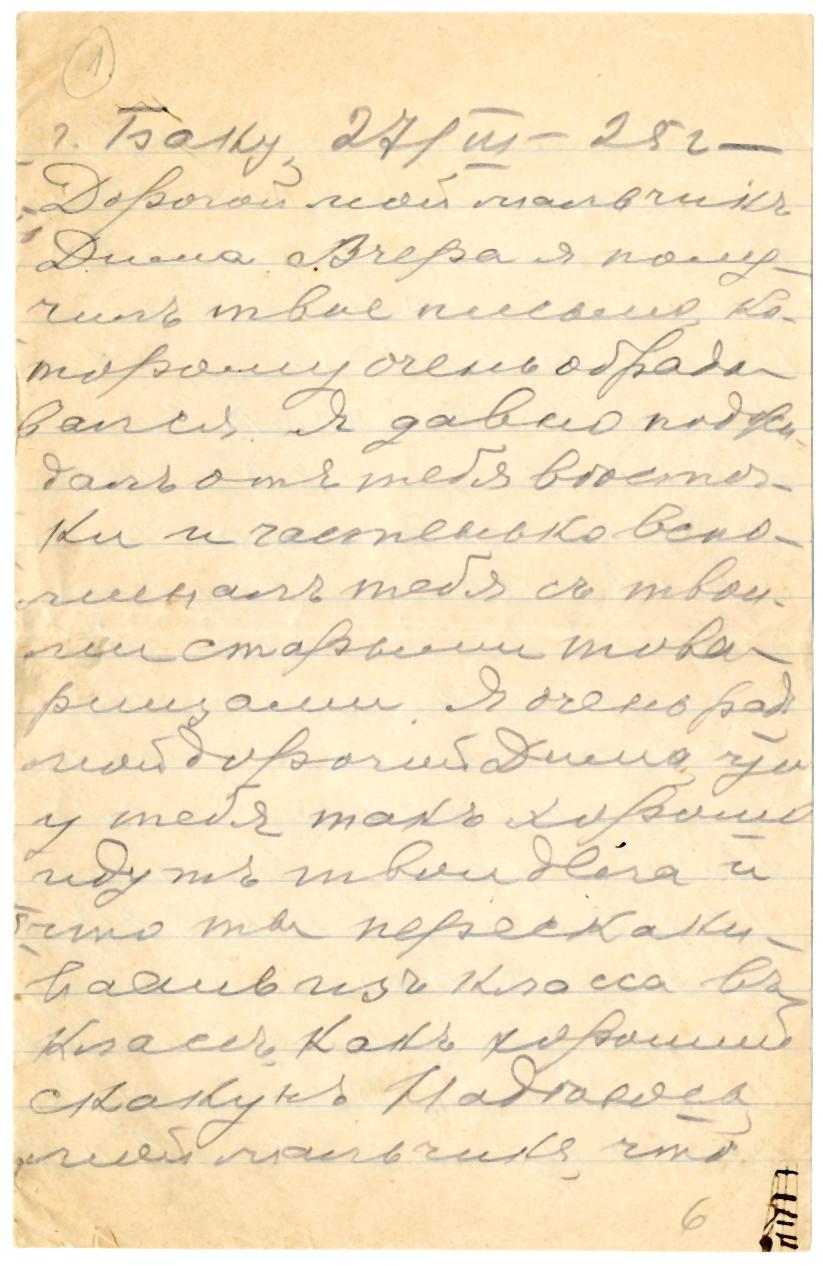 1
г. Баку, 27/III – 25 г –
Дорогой мой мальчикъ
Дима Вчера я полу-
чилъ твое письмо, ко-
торому очень обрадо-
вался. Я давно поджи-
далъ отъ тебя вѣсточ-
ки и частенько вспо-
миналъ тебя съ твои-
ми старыми това-
рищами. Я очень рад
мой дорогой Дима, что
у тебя такъ хорошо
идутъ твои дѣла и
что ты перескаки-
ваешь изъ класса въ
классъ, какъ хорошій
скакунъ Надѣюсь,
мой мальчикъ, что
6